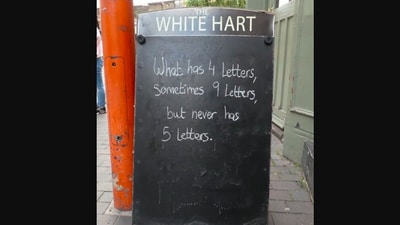 THE
WHITE HART
What has 4 letters,
sometimes 9 letters,
but never has
5 letters.